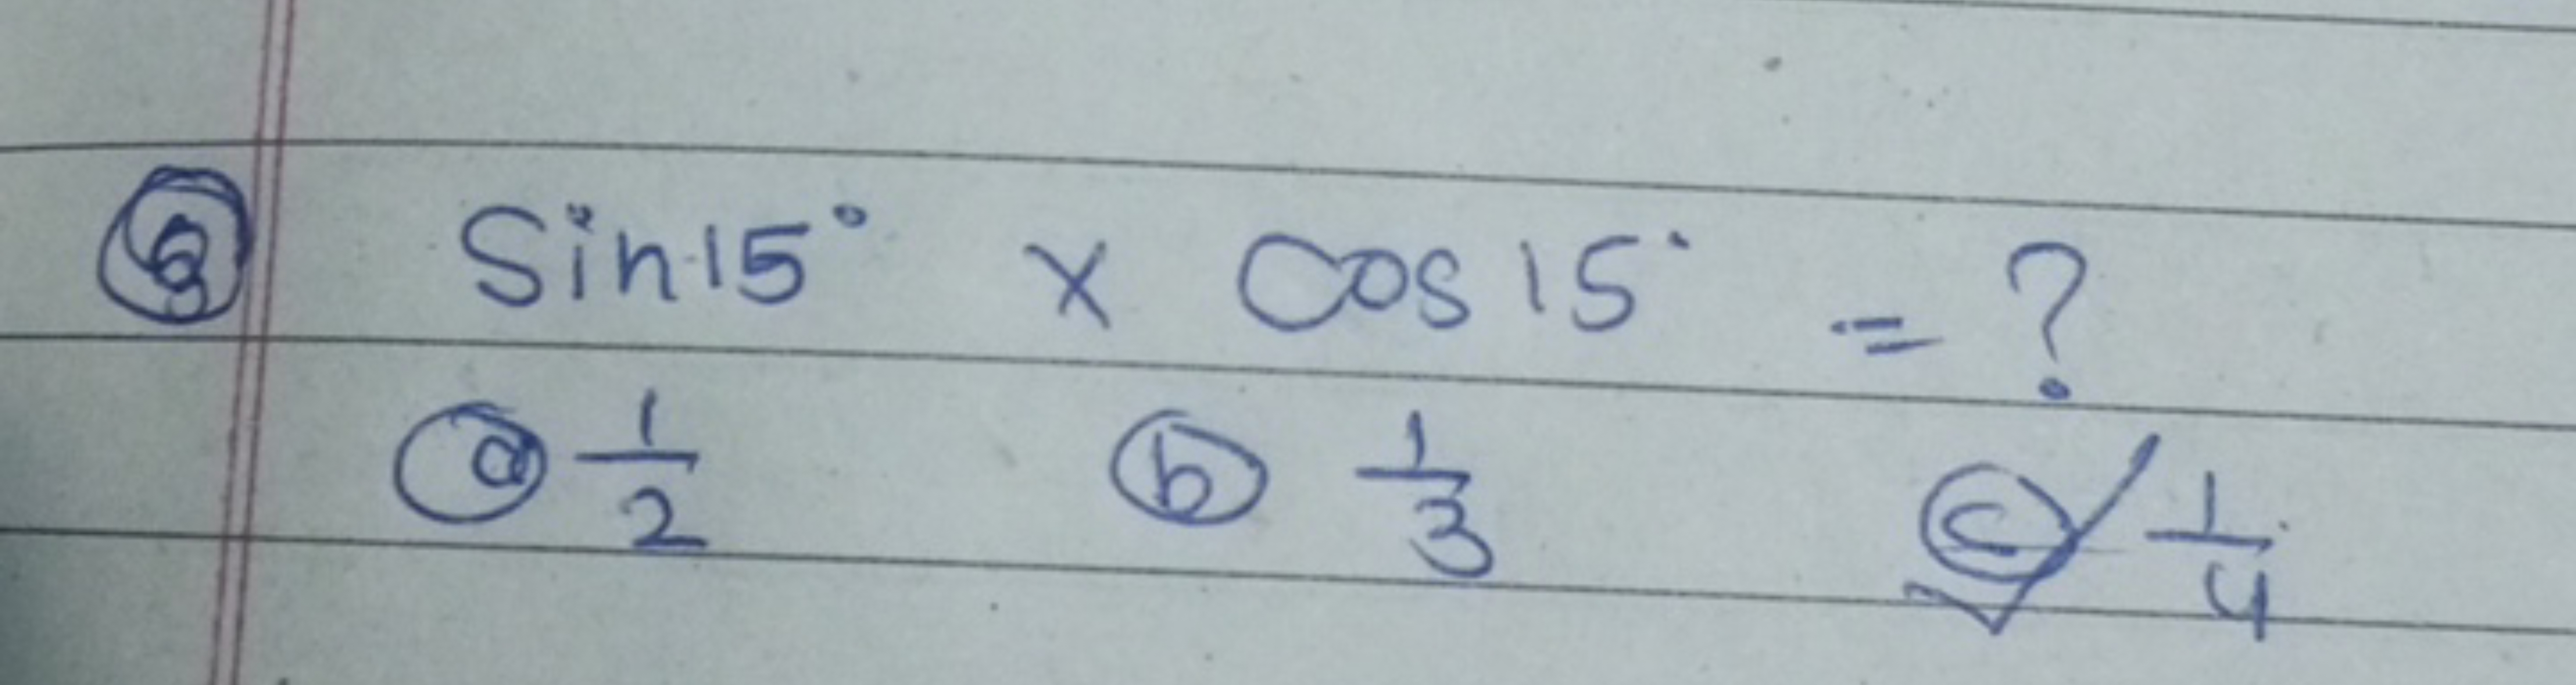 Sin 15° × Cos 15° = ?
ⓐ 1/2 ⓑ 1/3 ⓒ✓ 1/4